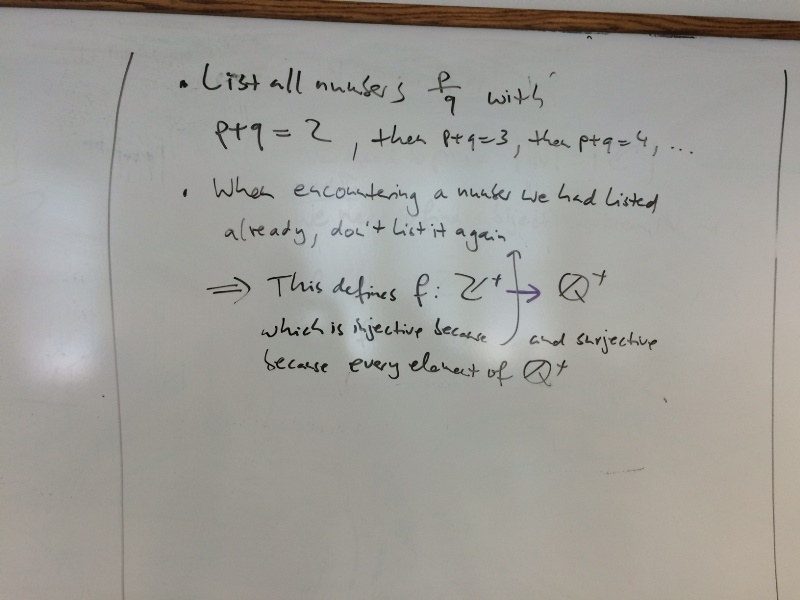 • List all numbers p/q with
p+q = 2, then p+q=3, then p+q=4, ...
• When encountering a number we had listed
already, don't list it again
⇒ This defines f: ℤ⁺ → ℚ⁺
which is injective because ↑ and surjective
because every element of ℚ⁺